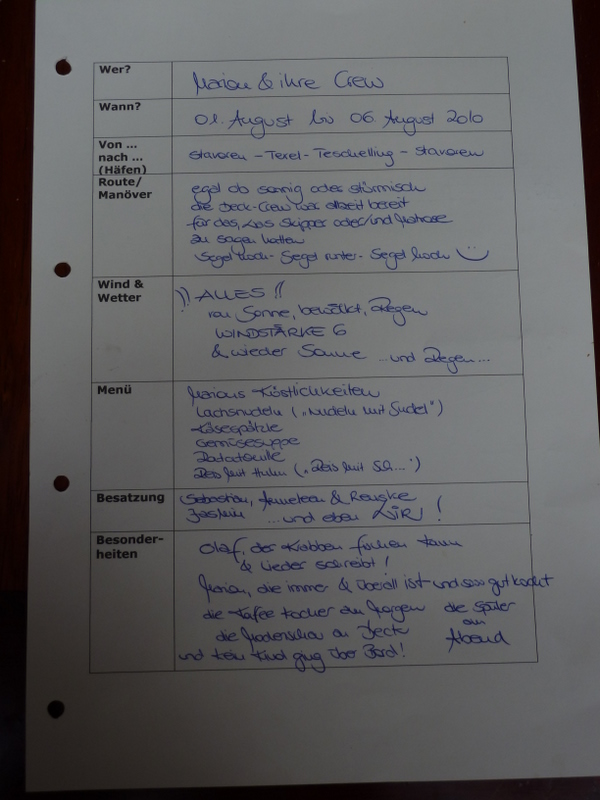 Wer?
Marion & ihre Crew
Wann?
01. August bis 06. August 2010
Von ...
nach ...
(Häfen)
Stavoren - Texel - Teschelling - Stavoren
Route/
Manöver
egal ob sonnig oder stürmisch
die Deck-Crew war allzeit bereit
für das, was Skipper oder/und Matrose
zu sagen hatten
Segel hoch - Segel runter - Segel hoch
Wind &
Wetter
!! ALLES !!
von Sonne, bewölkt, Regen
WINDSTÄRKE 6
& wieder Sonne ... und Regen ...
Menü
Marions Köstlichkeiten
Lachsnudeln („Nudeln mit Sudel")
Käsespätzle
Gemüsesuppe
Ratatouille
Reis mit Huhn („Reis mit Sch...")
Besatzung
Sebastian, & Renske
... und eben WIR!
Besonder-
heiten
Olaf, der Krabben fischen kann
& Lieder schreibt!
Marion, die immer & überall ist und sooo gut kocht
die Kaffee Kocher am Morgen die Spüler
am
die Modenschau an Deck Abend
und kein Kind ging über Bord!